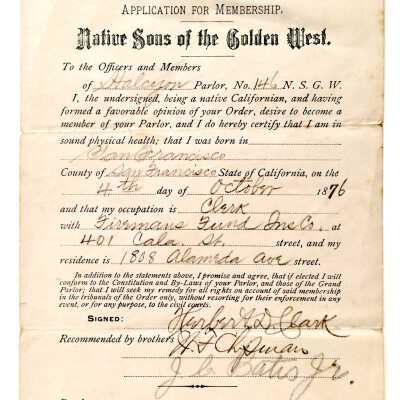 APPLICATION FOR MEMBERSHIP.
Native Sons of the Golden West.
To the Officers and Members
of Halcyon Parlor, No. 146 N. S. G. W.
I, the undersigned, being a native Californian, and having
formed a favorable opinion of your Order, desire to become a
member of your Parlor, and I do hereby certify that I am in
sound physical health; that I was born in
San Francisco
County of San Francisco State of California, on the
4th day of October 1876
and that my occupation is Clerk
with Firemans Fund Ins Co. at
401 Cala. St. street, and my
residence is 1808 Alameda Ave street.
In addition to the statements above, I promise and agree, that if elected I will
conform to the Constitution and By-Laws of your Parlor, and those of the Grand
Parlor; that I will seek my remedy for all rights on account of said membership
in the tribunals of the Order only, without resorting for their enforcement in any
event, or for any purpose, to the civil courts.
SIGNED: Herbert D. Clark
Recommended by brothers
J. C. Bates Jr.